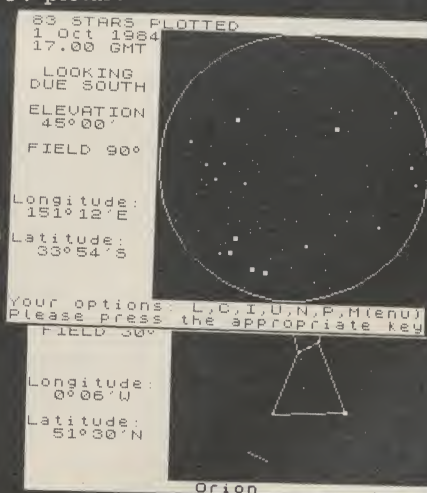 83 STARS PLOTTED
1 Oct 1984
17.00 GMT
LOOKING
DUE SOUTH
ELEVATION
45°00'
FIELD 90°
Longitude:
151°12'E
Latitude:
33°54'S
Your options: L,C,I,U,N,P,M(enu)
Please press the appropriate key
FIELD 30°
Longitude:
0°06'W
Latitude:
51°30'N
Orion